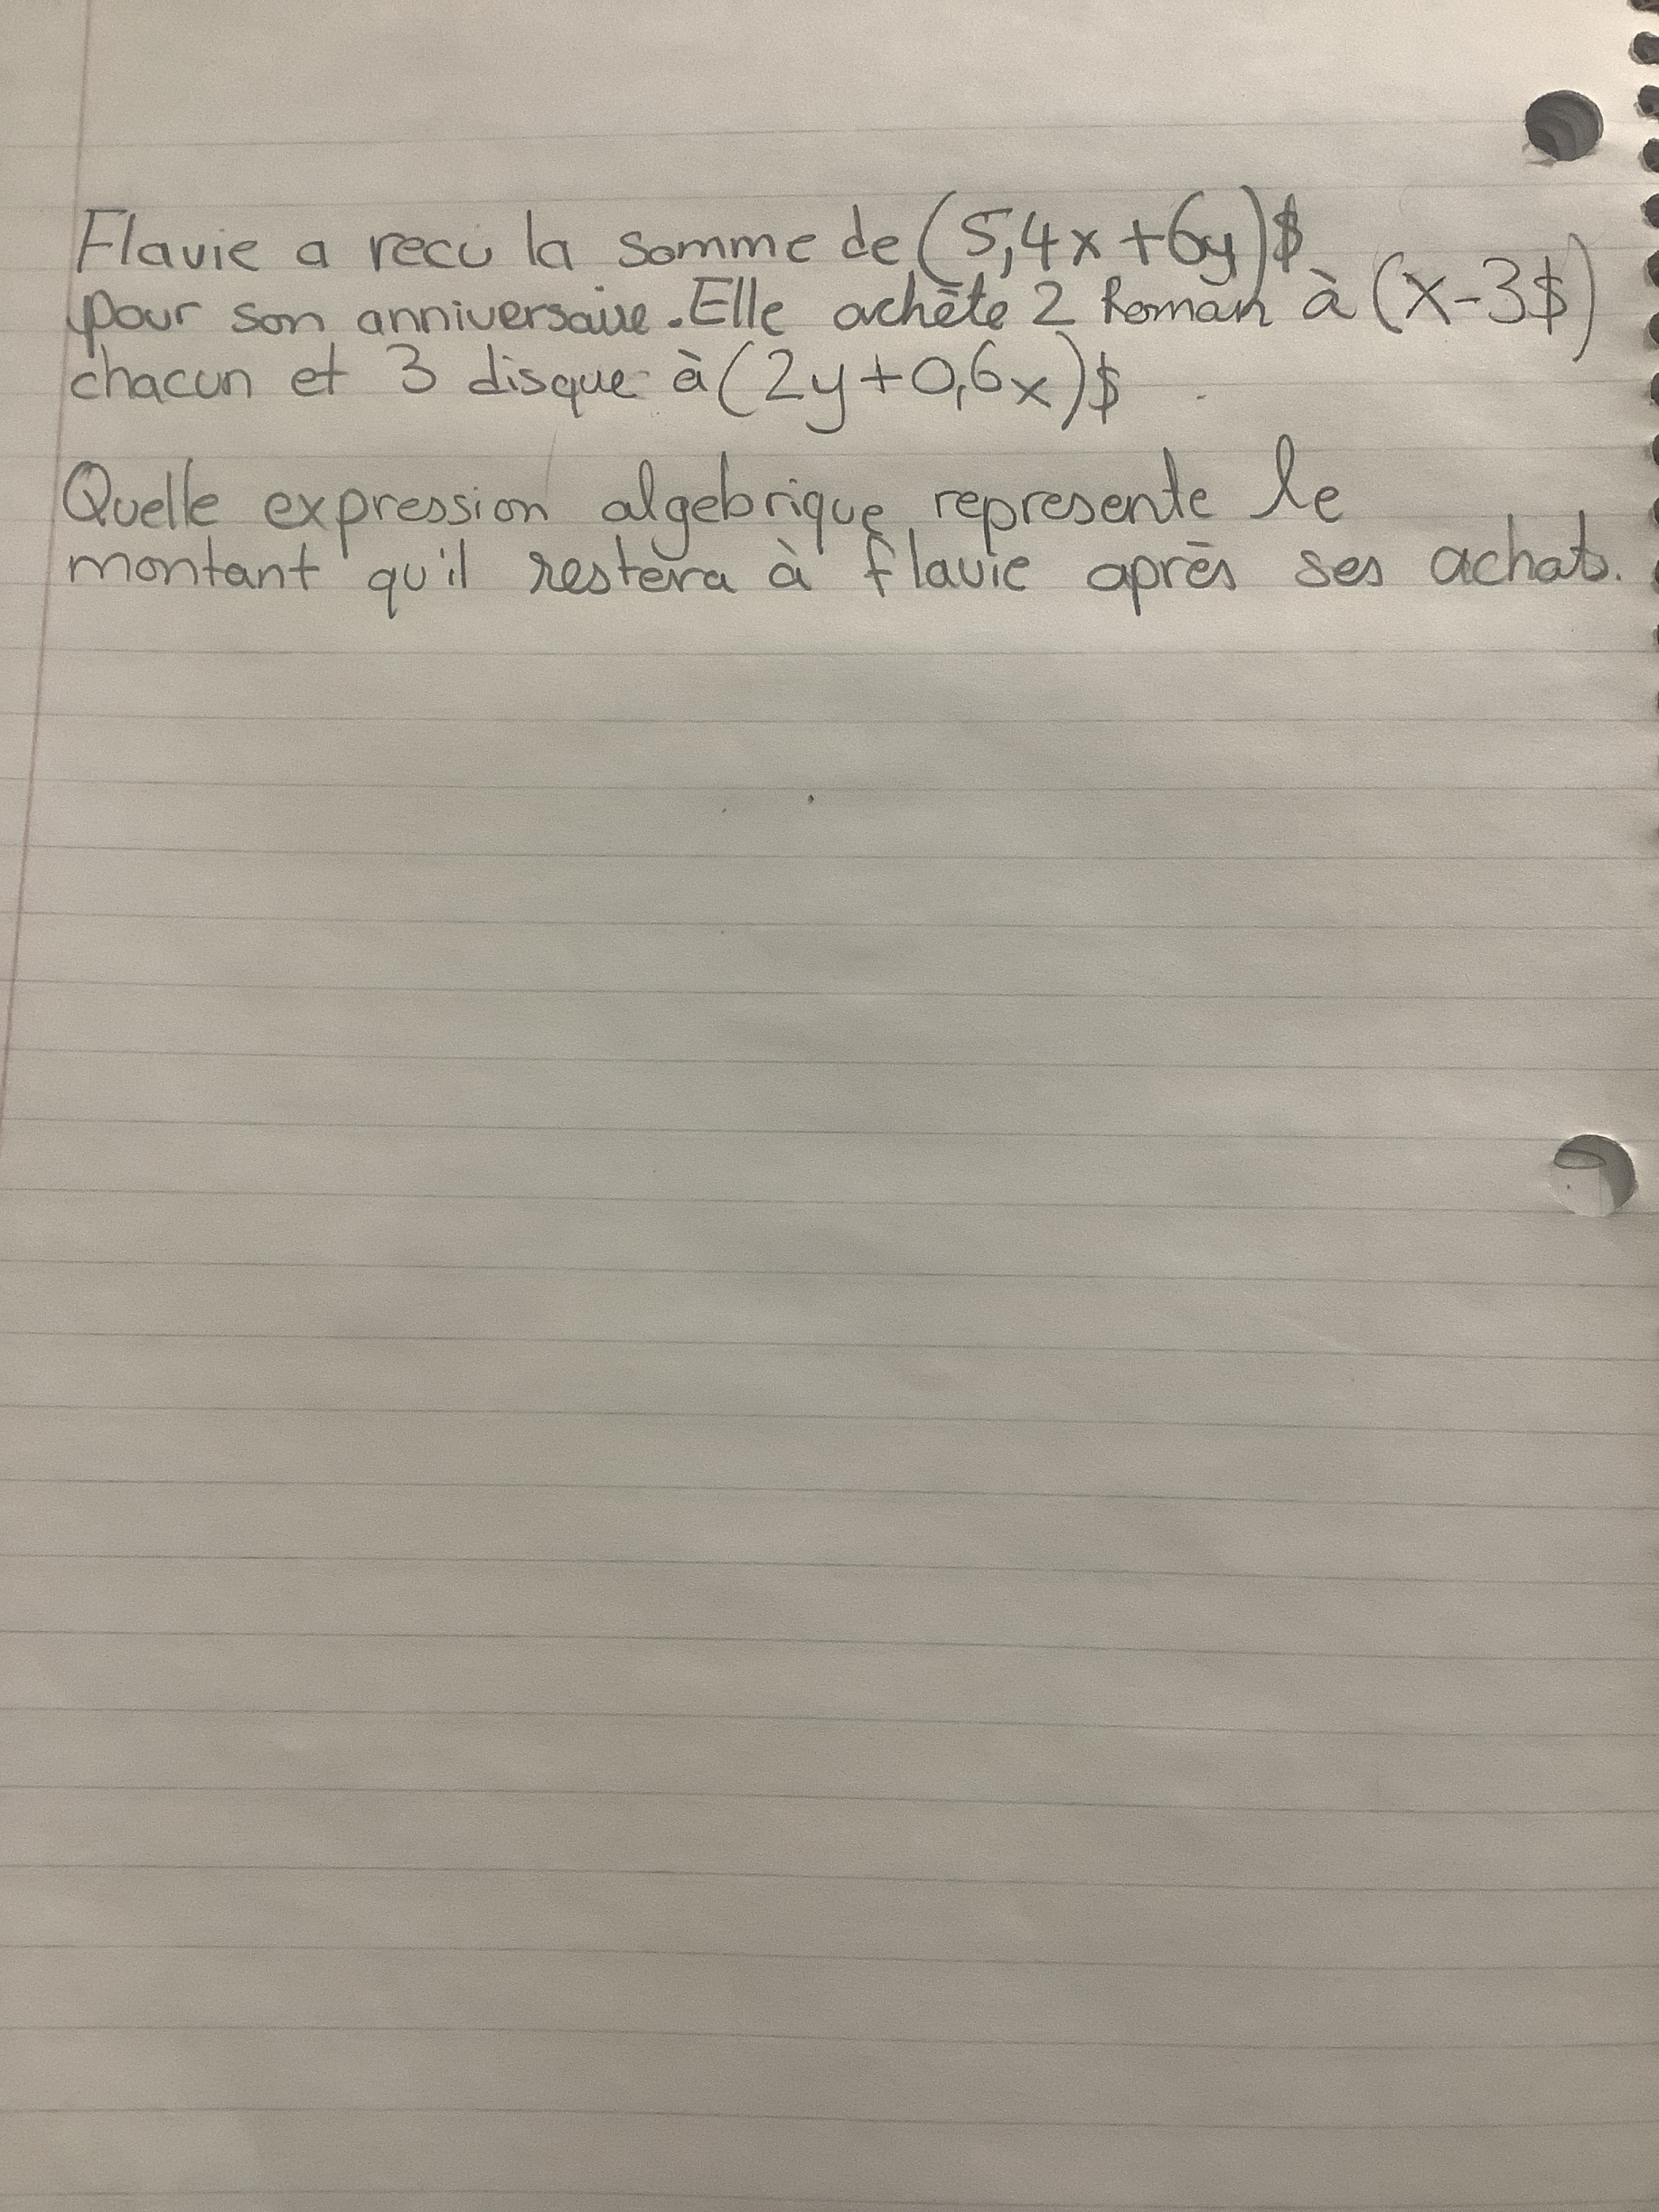 Flavie a recu la somme de (5,4x+6y)$
pour son anniversaire. Elle achète 2 Roman à (x-3$)
chacun et 3 disque à (2y+0,6x)$
Quelle expression algebrique represente le
montant qu'il restera à flavie après ses achats.